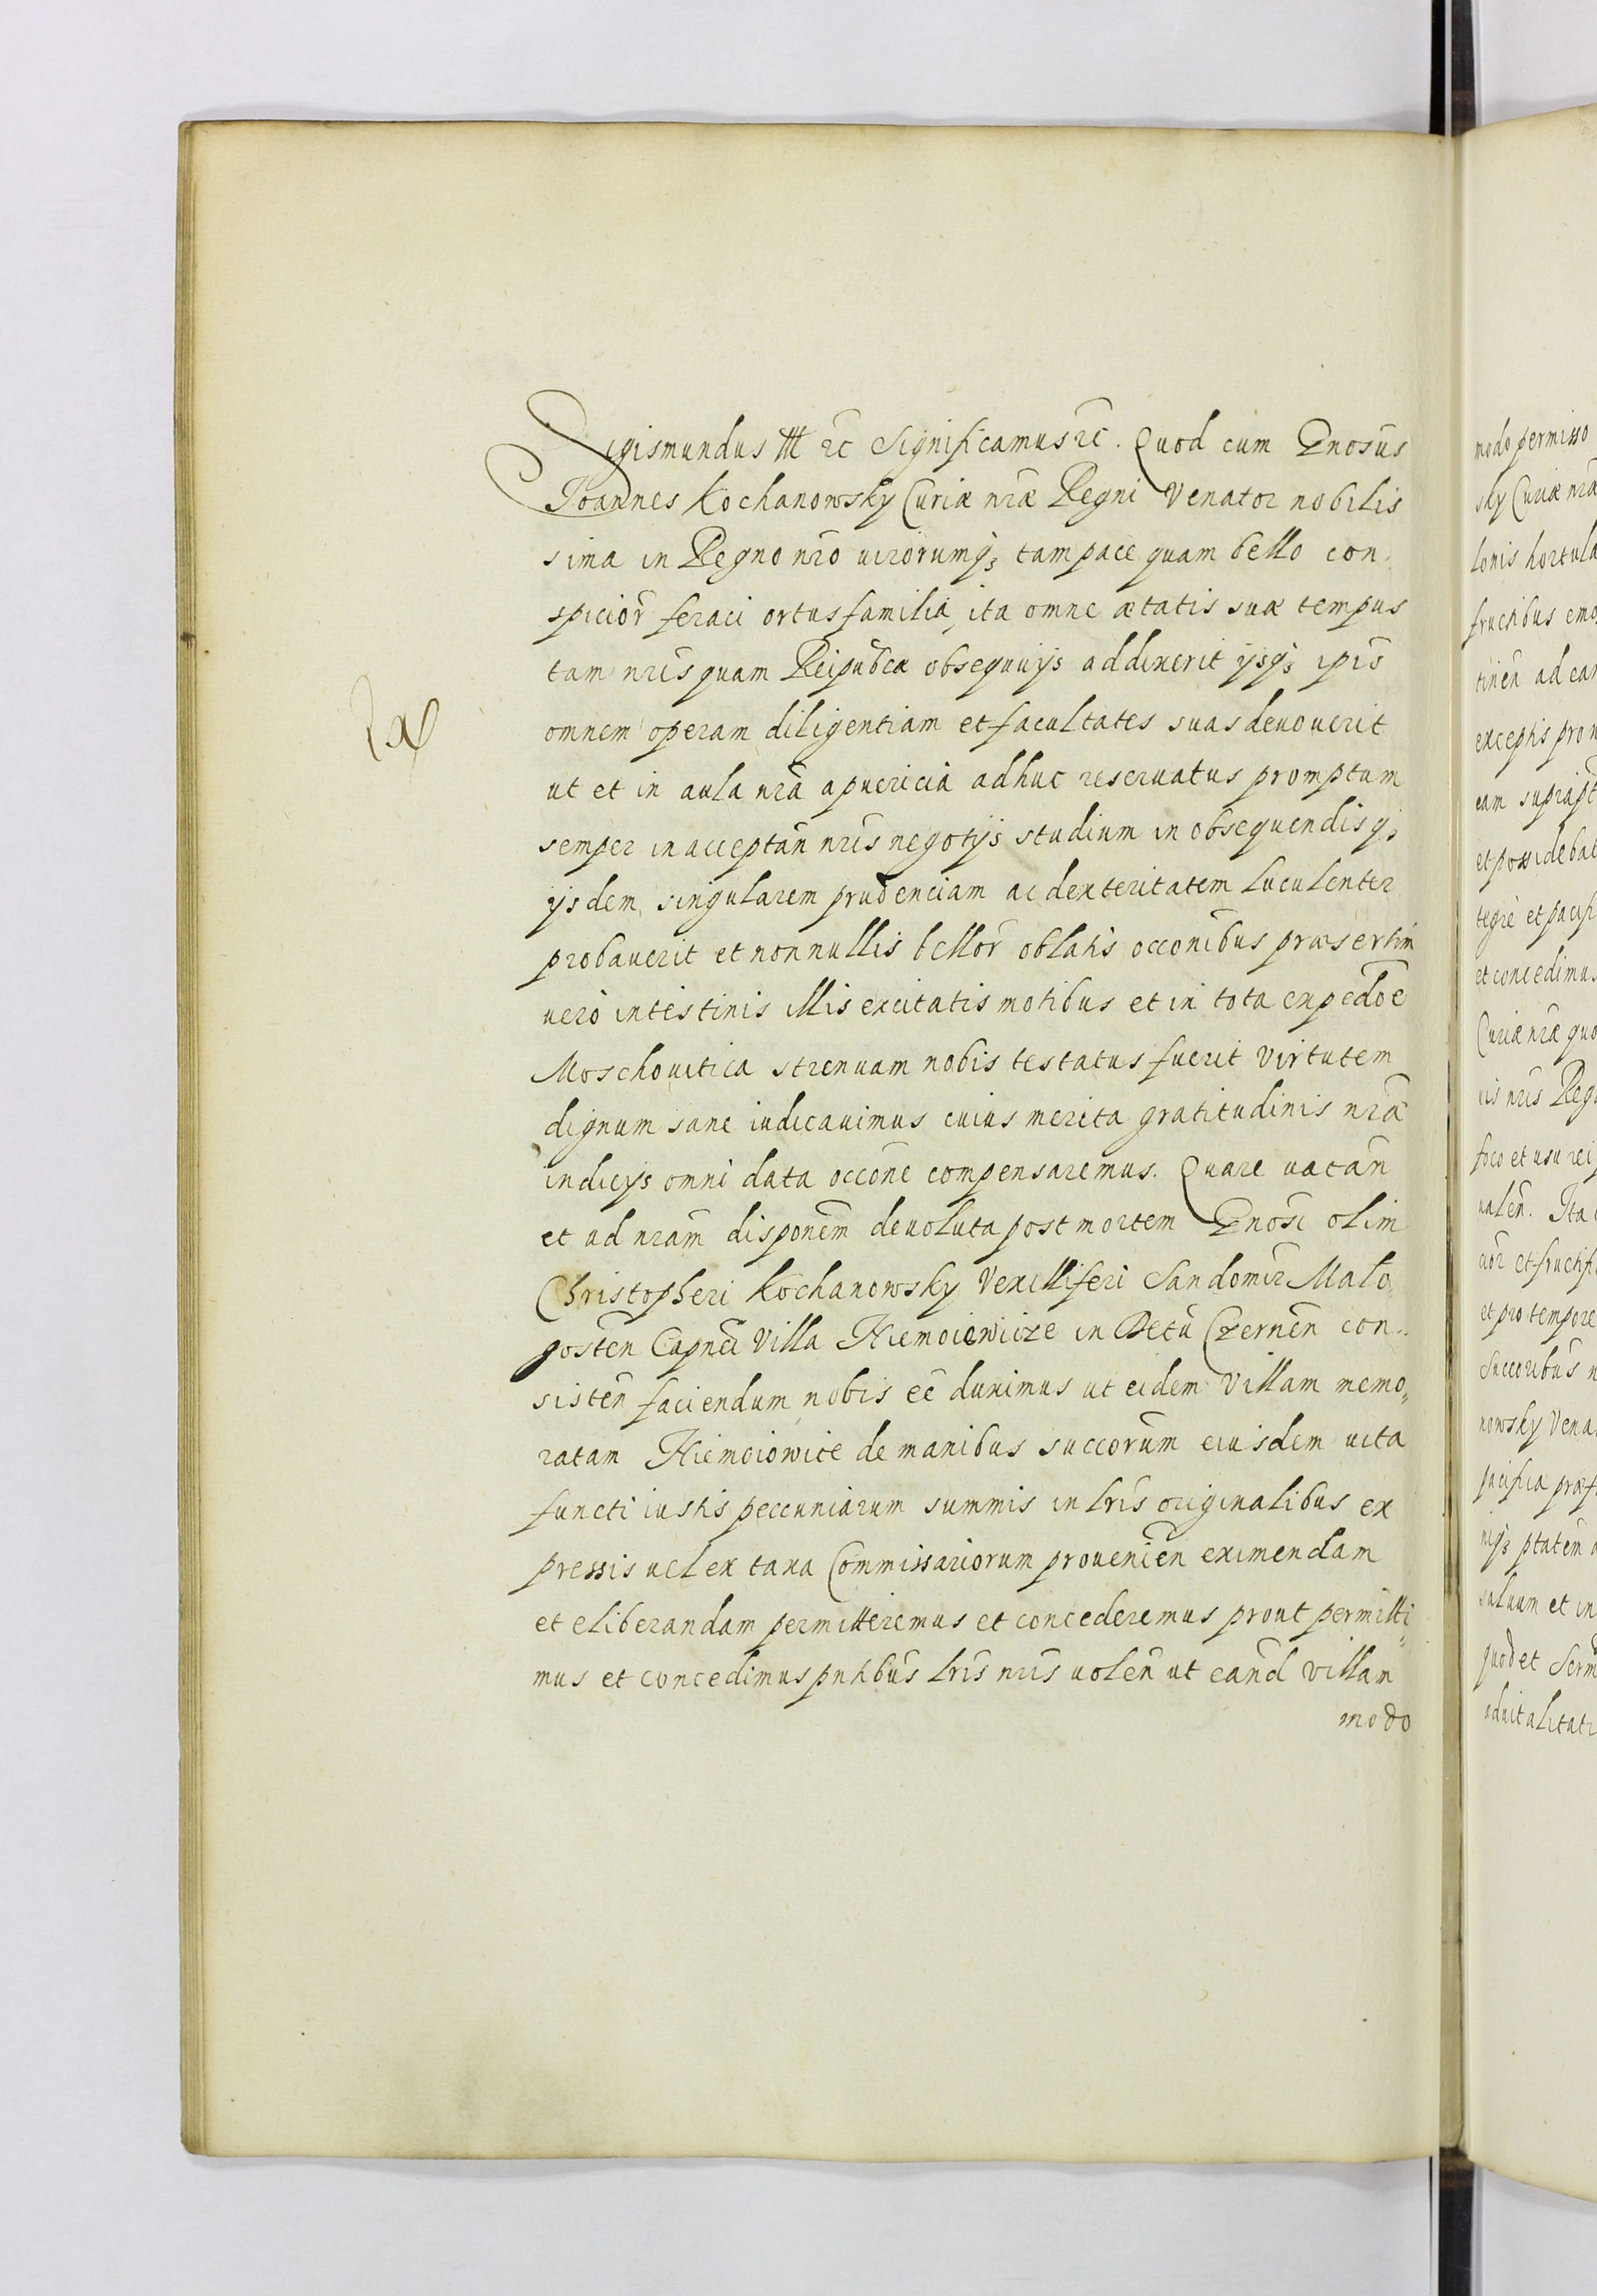 Sigismundus III etc Significamus etc. Quod cum Gnosus
Joannes Kochanowsky Curiæ nræ Regni Venator nobilis
sima in Regno nro uirorumq₃ tam pace quam bello con
spicior feraci ortus familia, ita omne ætatis suæ tempus
tam nris quam Reipubcæ obsequijs addixerit ijsq₃ ipis
omnem operam diligentiam et facultates suas deuouerit
ut et in aula nra a puericia adhuc reseruatus promptum
semper in acceptan nris negotijs studium in obsequendisq₃
ijsdem singularem prudenciam ac dexteritatem luculenter
probauerit et nonnullis bellor oblatis occonibus præsertim
uero intestinis illis excitatis motibus et in tota expedoe
Moschouitica strenuam nobis testatus fuerit virtutem
dignum sane iudicauimus cuius merita gratitudinis nræ
indicijs omni data occone compensaremus. Quare uacan
et ad nram disponem deuoluta post mortem Gnosi olim
Christopheri Kochanowsky Vexilliferi Sandomir Malo
gosten Capnei Villa Niemoiowicze in Dttu Czernen con
sisten faciendum nobis ee duximus ut eidem Villam memo
ratam Niemoiowice de manibus succorum eiusdem uita
functi iustis peccuniarum summis in lris originalibus ex
pressis uel ex taxa Commissariorum prouenien eximendam
et eliberandam permitteremus et concederemus prout permitti
mus et concedimus pntibus lris nris uolen ut eand villam
modo
modo permisso
sky Curiæ nræ
lonis hortula
fructibus emo
tinen ad ean
exceptis pro n
eam suprapt
et possidebat
tegre et pacifi
et concedimus
Curiæ nræ quo
uis nris Reg
foco et usu rei
ualen. Ita
cior et fructifi
et pro tempore
Succoribus n
nowsky Vena
pacifica
niq₃ ptatem
saluum et in
quod et Serm
aduitalitati